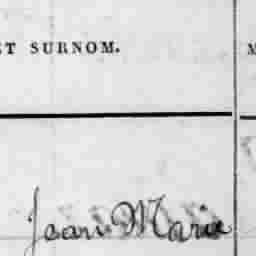 ET SURNOM.
Jean Marie